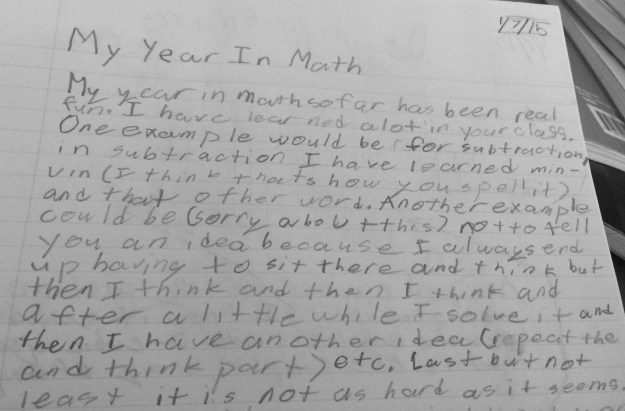 1/7/15
My Year In Math
My year in math so far has been real
fun. I have learned alot in your class.
One example would be for subtraction,
in subtraction I have learned min-
uin (I think thats how you spell it)
and that other word. Another example
could be (sorry about this) not to tell
you an idea because I always end
up having to sit there and think but
then I think and then I think and
after a little while I solve it and
then I have another idea (repeat the
and think part) etc. Last but not
least it is not as hard as it seems.